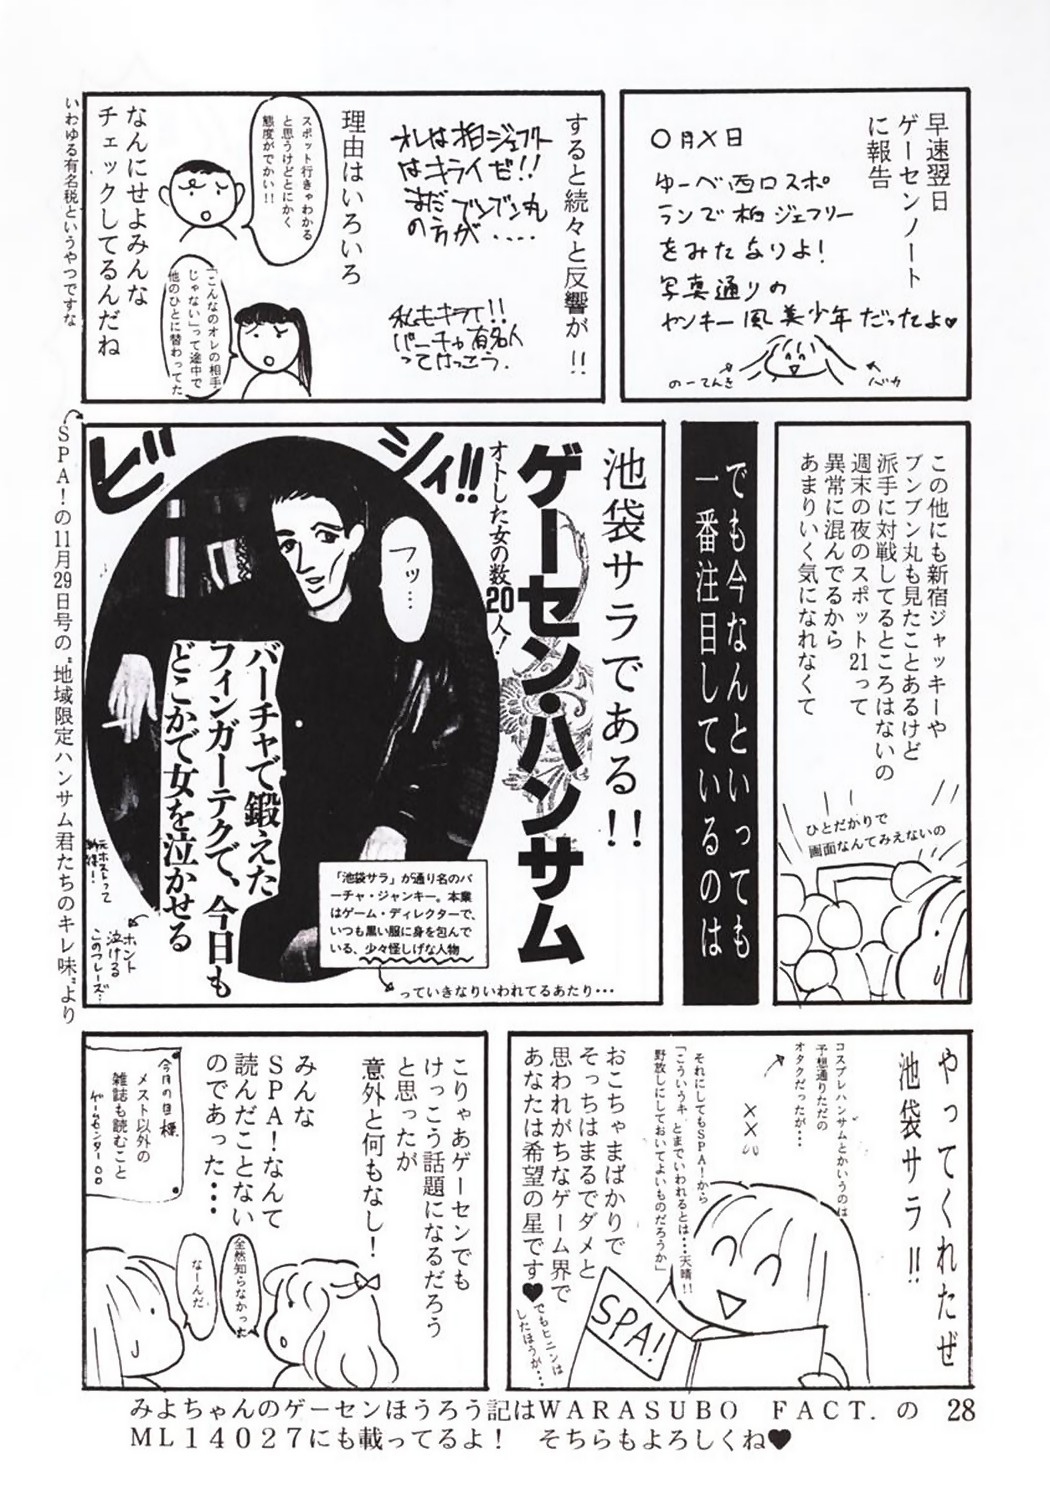 早速翌日
ゲーセンノート
に報告
〇月✕日
ゆーべ西口スポ
ランで柏ジェフリー
をみたなりよ!
写真通りの
ヤンキー風美少年だったよ♥
のーてんき
バカ
すると続々と反響が!!
オレは柏ジェフリー
はキライゼ!!
まだブンブン丸
の方が....
私もキライ!!
バーチャ有名人
ってけっこう.
理由はいろいろ
スポット行きゃわかる
と思うけどとにかく
態度がでかい!!
「こんなのオレの相手
じゃない」って途中で
他のひとに替わってた
なんにせよみんな
チェックしてるんだね
いわゆる有名税というやつですな
この他にも新宿ジャッキーや
ブンブン丸も見たことあるけど
派手に対戦してるところはないの
週末の夜のスポット21って
異常に混んでるから
あまりいく気になれなくて
ひとだかりで
画面なんてみえないの
でも今なんといっても
一番注目しているのは
池袋サラである!!
ゲーセン・ハンサム
オトした女の数20人!
ビシィ!!
フッ…
バーチャで鍛えた
フィンガーテクで、今日も
どこかで女を泣かせる
「池袋サラ」が通り名のバ
ーチャ・ジャンキー。本業
はゲーム・ディレクターで、
いつも黒い服に身を包んで
いる、少々怪しげな人物
っていきなりいわれてるあたり・・・
元ホストって
納得!
ホント
泣ける
このフレーズ…
SPA!の11月29日号の〝地域限定ハンサム君たちのキレ味〟より
やってくれたぜ
池袋サラ!!
コスプレハンサムとかいうのは
予想通りただの
オタクだったが…
それにしてもSPA!から
「こういうキ とまでいわれるとは…天晴!!
野放しにしておいてよいものだろうか」
おこちゃまばかりで
そっちはまるでダメと
思われがちなゲーム界で
あなたは希望の星です♥
でもヒニンは
したほうが…
SPA!
こりゃあゲーセンでも
けっこう話題になるだろう
と思ったが
意外と何もなし!
みんな
SPA!なんて
読んだことない
のであった・・・
今月の目標
メスト以外の
雑誌も読むこと
ゲームセンター〇〇
全然知らなかった
なーんだ
みよちゃんのゲーセンほうろう記はWARASUBO FACT.の
ML14027にも載ってるよ! そちらもよろしくね♥
28